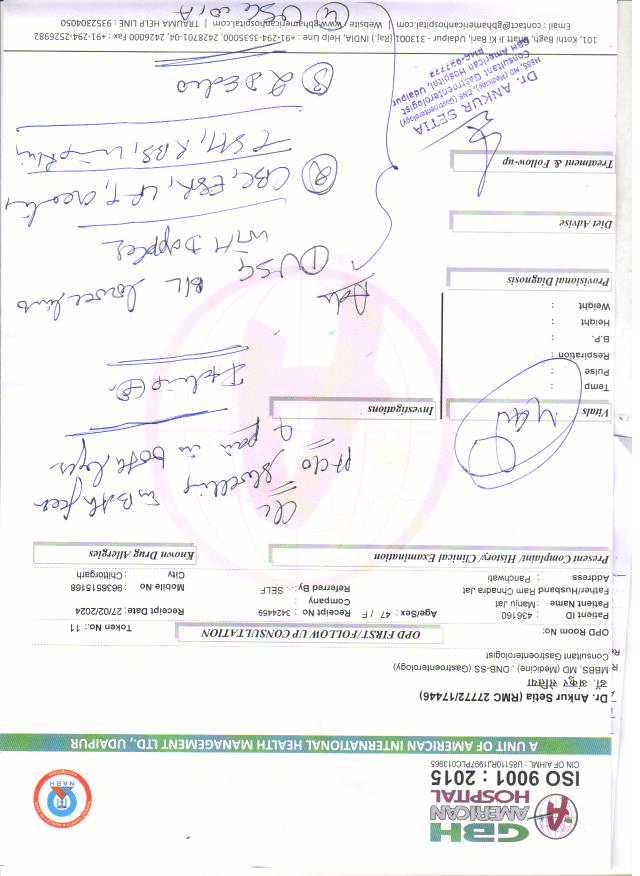 GBH
AMERICAN
HOSPITAL
NABH
ISO 9001 : 2015
CIN OF AIHML : U85110RJ1997PLC013965
A UNIT OF AMERICAN INTERNATIONAL HEALTH MANAGEMENT LTD., UDAIPUR
Dr. Ankur Setia (RMC 27772/17446)
डॉ. अंकुर सेतिया
MBBS, MD (Medicine) , DNB-SS (Gastroenterology)
Consultant Gastroenterologist
OPD Room No: OPD FIRST/FOLLOW UP CONSULTATION Token No.: 11
Patient ID : 436160 Age/Sex: 47 / F Receipt No : 3424459 Receipt Date: 27/02/2024
Patient Name : Manju Jat Company :
Father/Husband Ram Chnadra Jat Referred By : SELF Mobile No : 9636516168
Address : Panchwati City : Chittorgarh
Present Complaint/ History/ Clinical Examination Known Drug Allergies
in Both feet
H/o swelling
& pain in both legs
Vitals Investigations
Temp :
Pulse :
Respiration :
B.P. :
Height :
Weight :
Adv
① USG B/L lower limb
with Doppler
Provisional Diagnosis
Diet Advise
② CBC, ESR, LFT,
TSH, RBS,
Treatment & Follow-up
③ 2D Echo
④ USG W/A
Dr. ANKUR SETIA
MBBS, MD (Medicine), DNB (Gastroenterology)
Consultant Gastroenterologist
GBH American Hospital, Udaipur
RMC-27772
101, Kothi Bagh, Bhatt Ji Ki Bari, Udaipur - 313001 (Raj.) INDIA, Help Line : +91-294-3535000, 2428701-04, 2426000 Fax : +91-294-2526982
Email : contact@gbhamericanhospital.com | Website : www.gbhamericanhospital.com | TRAUMA HELP LINE : 9352304050